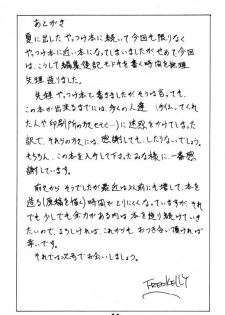 あとがき
夏に出した やっつけ本に続いて今回も限りなく
やっつけ本に近い本になってしまいましたがせめて今回
は、こうして編集後記モドキを書く時間を無理
矢理 造りました。
矢理やっつけ本と書きましたがそうは言っても、
この本が出来るまでには、多くの人達 (手伝ってくれ
た人や印刷所の方々でそ…) に迷惑をかけてしまった
訳で、それらの方々には、感謝してもしたりないでしょう。
もちろん、この本を入手して下さったみな様に、一番感
謝しています。
前々から そうでしたが最近は以前にも増して、本を
造る(原稿を描く)時間がとりにくくなっていますが、それ
でも少しでも余力がある内は本を造り続けていき
たいので、よろしければ、これからも おつき合い頂ければ
幸いです。
それでは次号でお会いしましょう。
FREE KELLY